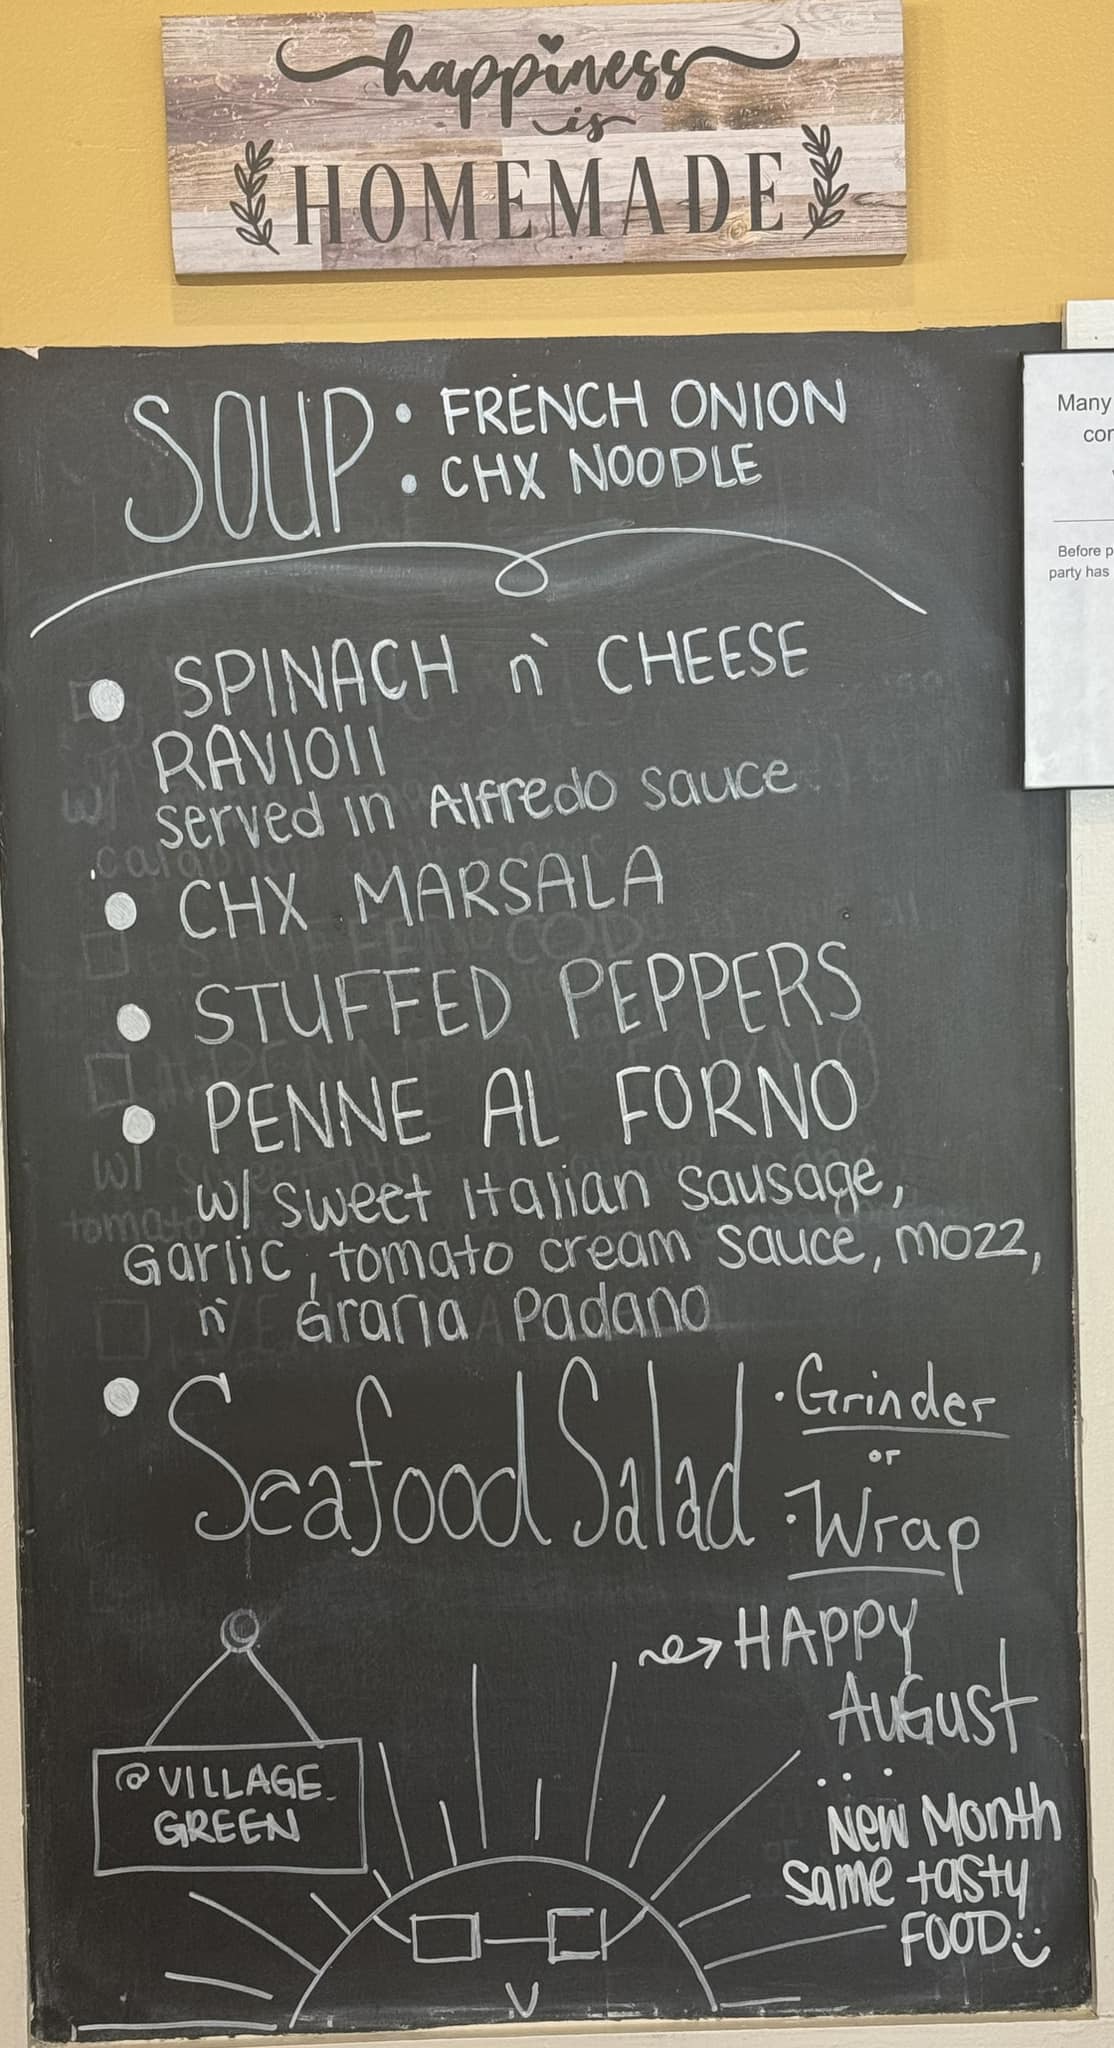 happiness
is
HOMEMADE
SOUP: FRENCH ONION
CHX NOODLE
SPINACH n' CHEESE
RAVIOlI
served in Alfredo sauce
CHX MARSALA
STUFFED PEPPERS
PENNE AL FORNO
w/ sweet Italian Sausage,
Garlic, tomato cream sauce, mozz,
n' Grana Padano
Seafood Salad
Grinder
or
Wrap
HAPPY
AUGUST
...
New Month
Same tasty
FOOD
@VILLAGE
GREEN
Many
Before p
party has